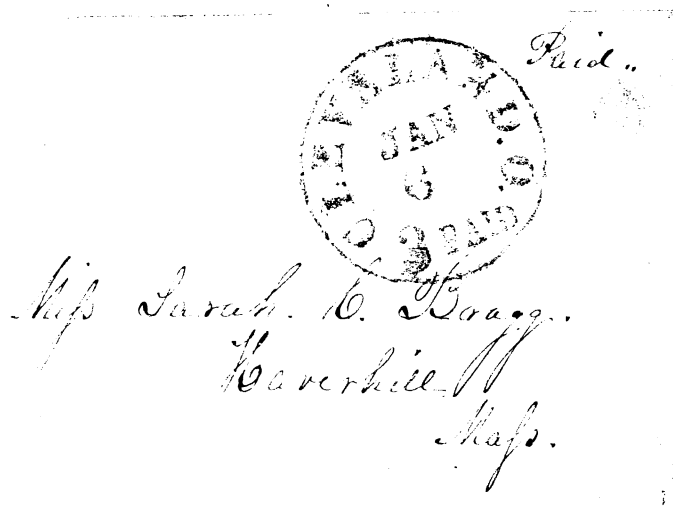 Paid
CLEVELAND. O.
JAN
6
3 PAID
Miss Sarah. E. Bragg.
Haverhill
Mass.